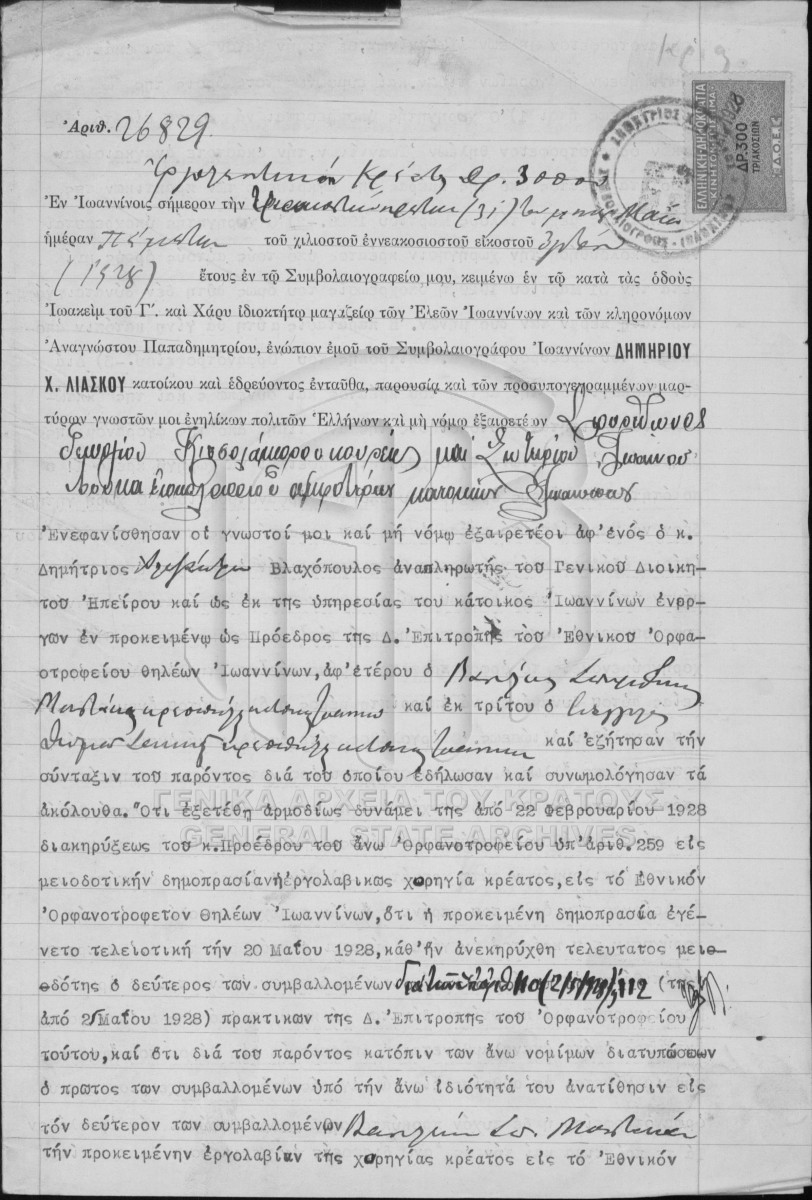 Ἀριθ. 26829
Ἐργολαβικὸν Κρέατος Δρ. 30000
Ἐν Ἰωαννίνοις σήμερον τὴν τριακοστὴν πρώτην (31) τοῦ μηνὸς Μαΐου
ἡμέραν Πέμπτην τοῦ χιλιοστοῦ ἐννεακοσιοστοῦ εἰκοστοῦ ὀγδόου
(1928) ἔτους ἐν τῷ Συμβολαιογραφείῳ μου, κειμένῳ ἐν τῷ κατὰ τὰς ὁδοὺς
Ἰωακεὶμ τοῦ Γ΄. καὶ Χάρυ ἰδιοκτήτῳ μαγαζείῳ τῶν Ἐλεῶν Ἰωαννίνων καὶ τῶν κληρονόμων
Ἀναγνώστου Παπαδημητρίου, ἐνώπιον ἐμοῦ τοῦ Συμβολαιογράφου Ἰωαννίνων ΔΗΜΗΡΙΟΥ
Χ. ΛΙΑΣΚΟΥ κατοίκου καὶ ἑδρεύοντος ἐνταῦθα, παρουσίᾳ καὶ τῶν προσυπογεγραμμένων μαρ-
τύρων γνωστῶν μοι ἐνηλίκων πολιτῶν Ἑλλήνων καὶ μὴ νόμῳ ἐξαιρετέων Σπυρίδωνος
Γεωργίου κουρέως καὶ Σωτηρίου Ἰωάννου
Λούκα ἀμφοτέρων κατοίκων Ἰωαννίνων
Ἐνεφανίσθησαν οἱ γνωστοί μοι καί μή νόμῳ ἐξαιρετέοι ἀφ'ἑνός ὁ κ.
Δημήτριος Βλαχόπουλος ἀναπληρωτής τοῦ Γενικοῦ Διοικη-
τοῦ Ἠπείρου καί ὡς ἐκ τῆς ὑπηρεσίας του κάτοικος Ἰωαννίνων ἐνερ-
γῶν ἐν προκειμένῳ ὡς Πρόεδρος τῆς Δ. Ἐπιτροπῆς τοῦ Ἐθνικοῦ Ὀρφα-
οτροφείου θηλέων Ἰωαννίνων, ἀφ'ἑτέρου ὁ Βασίλειος
Μαστάκας κρεοπώλης κάτοικος Ἰωαννίνων καί ἐκ τρίτου ὁ Γεώργιος
κρεοπώλης κάτοικος Ἰωαννίνων καί ἐζήτησαν τήν
σύνταξιν τοῦ παρόντος διά τοῦ ὁποίου ἐδήλωσαν καί συνωμολόγησαν τά
ἀκόλουθα. Ὅτι ἐξετέθη ἁρμοδίως δυνάμει τῆς ἀπό 22 Φεβρουαρίου 1928
διακηρύξεως τοῦ κ.Προέδρου τοῦ ἄνω Ὀρφανοτροφείου ὑπ'ἀριθ.259 εἰς
μειοδοτικήν δημοπρασίαν ἡ ἐργολαβικῶς χορηγία κρέατος, εἰς τό Ἐθνικόν
Ὀρφανοτροφεῖον Θηλέων Ἰωαννίνων, ὅτι ἡ προκειμένη δημοπρασία ἐγέ-
νετο τελειοτική τήν 20 Μαΐου 1928, καθ'ἥν ἀνεκηρύχθη τελευταῖος μειο-
δότης ὁ δεύτερος τῶν συμβαλλομένων διὰ τῶν ὑπ' ἀριθ. 110 (2/5/928), 112 (τῆς
ἀπό 25 Μαΐου 1928) πρακτικῶν τῆς Δ. Ἐπιτροπῆς τοῦ Ὀρφανοτροφείου
τούτου, καί ὅτι διά τοῦ παρόντος κατόπιν τῶν ἄνω νομίμων διατυπώσεων
ὁ πρῶτος τῶν συμβαλλομένων ὑπό τήν ἄνω ἰδιότητά του ἀνατίθησιν εἰς
τόν δεύτερον τῶν συμβαλλομένων Βασίλειον Σπ. Μαστάκαν
τήν προκειμένην ἐργολαβίαν τῆς χορηγίας κρέατος εἰς τό Ἐθνικόν
ΕΛΛΗΝΙΚΗ ΔΗΜΟΚΡΑΤΙΑ
ΔΡ.300
ΤΡΙΑΚΟΣΙΩΝ
ΓΕΝΙΚΑ ΑΡΧΕΙΑ ΤΟΥ ΚΡΑΤΟΥΣ
GENERAL STATE ARCHIVES